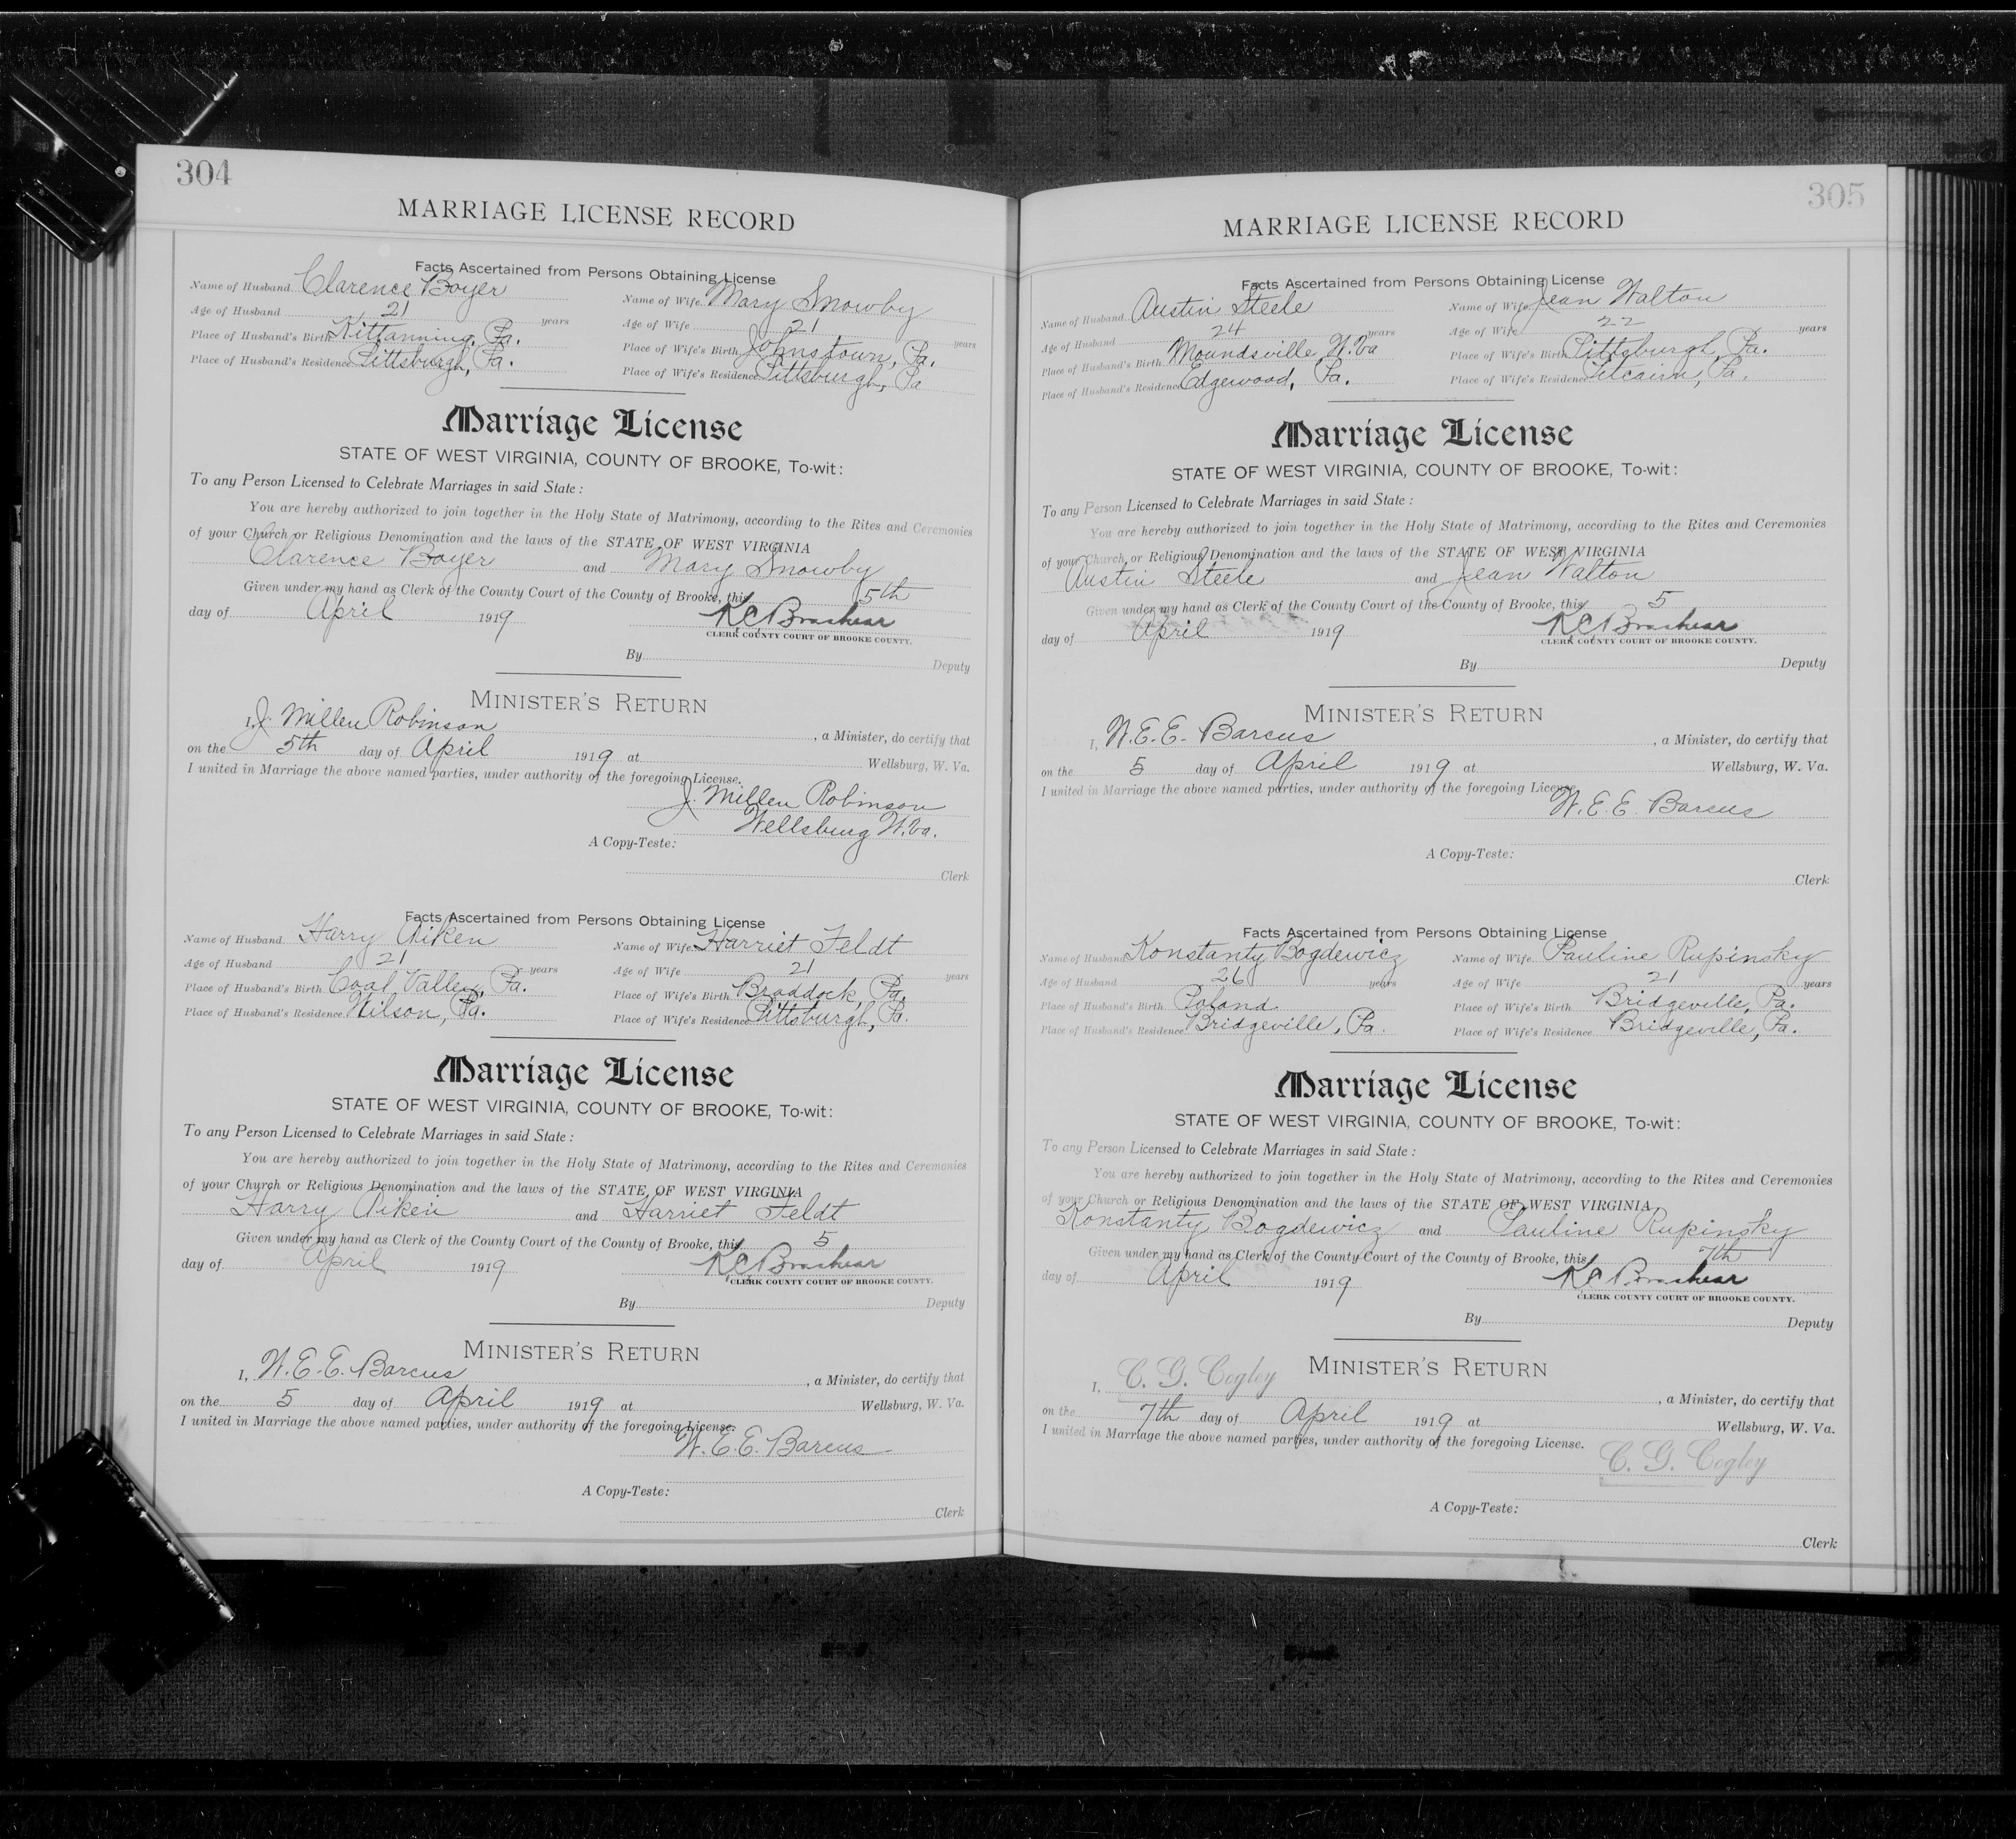 304
MARRIAGE LICENSE RECORD
Facts Ascertained from Persons Obtaining License
Name of Husband Clarence Boyer Name of Wife Mary Snowby
Age of Husband 21 years Age of Wife 21 years
Place of Husband's Birth Kittanning, Pa. Place of Wife's Birth Johnstown, Pa.
Place of Husband's Residence Pittsburgh, Pa. Place of Wife's Residence Pittsburgh, Pa
Marriage License
STATE OF WEST VIRGINIA, COUNTY OF BROOKE, To-wit:
To any Person Licensed to Celebrate Marriages in said State:
You are hereby authorized to join together in the Holy State of Matrimony, according to the Rites and Ceremonies
of your Church or Religious Denomination and the laws of the STATE OF WEST VIRGINIA
Clarence Boyer and Mary Snowby
Given under my hand as Clerk of the County Court of the County of Brooke, this 5th
day of April 1919 R C Brashear
CLERK COUNTY COURT OF BROOKE COUNTY.
By Deputy
MINISTER'S RETURN
I, J. Millen Robinson, a Minister, do certify that
on the 5th day of April 1919 at Wellsburg, W. Va.
I united in Marriage the above named parties, under authority of the foregoing License.
J. Millen Robinson
Wellsburg W.Va.
A Copy-Teste:
Clerk
Facts Ascertained from Persons Obtaining License
Name of Husband Harry Aiken Name of Wife Harriet Feldt
Age of Husband 21 years Age of Wife 21 years
Place of Husband's Birth Coal Valley, Pa. Place of Wife's Birth Braddock, Pa.
Place of Husband's Residence Wilson, Pa. Place of Wife's Residence Pittsburgh, Pa.
Marriage License
STATE OF WEST VIRGINIA, COUNTY OF BROOKE, To-wit:
To any Person Licensed to Celebrate Marriages in said State:
You are hereby authorized to join together in the Holy State of Matrimony, according to the Rites and Ceremonies
of your Church or Religious Denomination and the laws of the STATE OF WEST VIRGINIA
Harry Aiken and Harriet Feldt
Given under my hand as Clerk of the County Court of the County of Brooke, this 5
day of April 1919 R C Brashear
CLERK COUNTY COURT OF BROOKE COUNTY.
By Deputy
MINISTER'S RETURN
I, W. E. E. Barcus, a Minister, do certify that
on the 5 day of April 1919 at Wellsburg, W. Va.
I united in Marriage the above named parties, under authority of the foregoing License.
W. E. E. Barcus
A Copy-Teste:
Clerk
305
MARRIAGE LICENSE RECORD
Facts Ascertained from Persons Obtaining License
Name of Husband Austin Steele Name of Wife Jean Walton
Age of Husband 24 years Age of Wife 22 years
Place of Husband's Birth Moundsville, W.Va Place of Wife's Birth Pittsburgh, Pa.
Place of Husband's Residence Edgewood, Pa. Place of Wife's Residence Pitcairn, Pa.
Marriage License
STATE OF WEST VIRGINIA, COUNTY OF BROOKE, To-wit:
To any Person Licensed to Celebrate Marriages in said State:
You are hereby authorized to join together in the Holy State of Matrimony, according to the Rites and Ceremonies
of your Church or Religious Denomination and the laws of the STATE OF WEST VIRGINIA
Austin Steele and Jean Walton
Given under my hand as Clerk of the County Court of the County of Brooke, this 5
day of April 1919 R C Brashear
CLERK COUNTY COURT OF BROOKE COUNTY.
By Deputy
MINISTER'S RETURN
I, W. E. E. Barcus, a Minister, do certify that
on the 5 day of April 1919 at Wellsburg, W. Va.
I united in Marriage the above named parties, under authority of the foregoing License.
W. E. E. Barcus
A Copy-Teste:
Clerk
Facts Ascertained from Persons Obtaining License
Name of Husband Konstanty Bogdewicz Name of Wife Pauline Rupinsky
Age of Husband 26 years Age of Wife 21 years
Place of Husband's Birth Poland Place of Wife's Birth Bridgeville, Pa.
Place of Husband's Residence Bridgeville, Pa. Place of Wife's Residence Bridgeville, Pa.
Marriage License
STATE OF WEST VIRGINIA, COUNTY OF BROOKE, To-wit:
To any Person Licensed to Celebrate Marriages in said State:
You are hereby authorized to join together in the Holy State of Matrimony, according to the Rites and Ceremonies
of your Church or Religious Denomination and the laws of the STATE OF WEST VIRGINIA
Konstanty Bogdewicz and Pauline Rupinsky
Given under my hand as Clerk of the County Court of the County of Brooke, this 7th
day of April 1919 R C Brashear
CLERK COUNTY COURT OF BROOKE COUNTY.
By Deputy
MINISTER'S RETURN
I, C. G. Cogley, a Minister, do certify that
on the 7th day of April 1919 at Wellsburg, W. Va.
I united in Marriage the above named parties, under authority of the foregoing License.
C. G. Cogley
A Copy-Teste:
Clerk